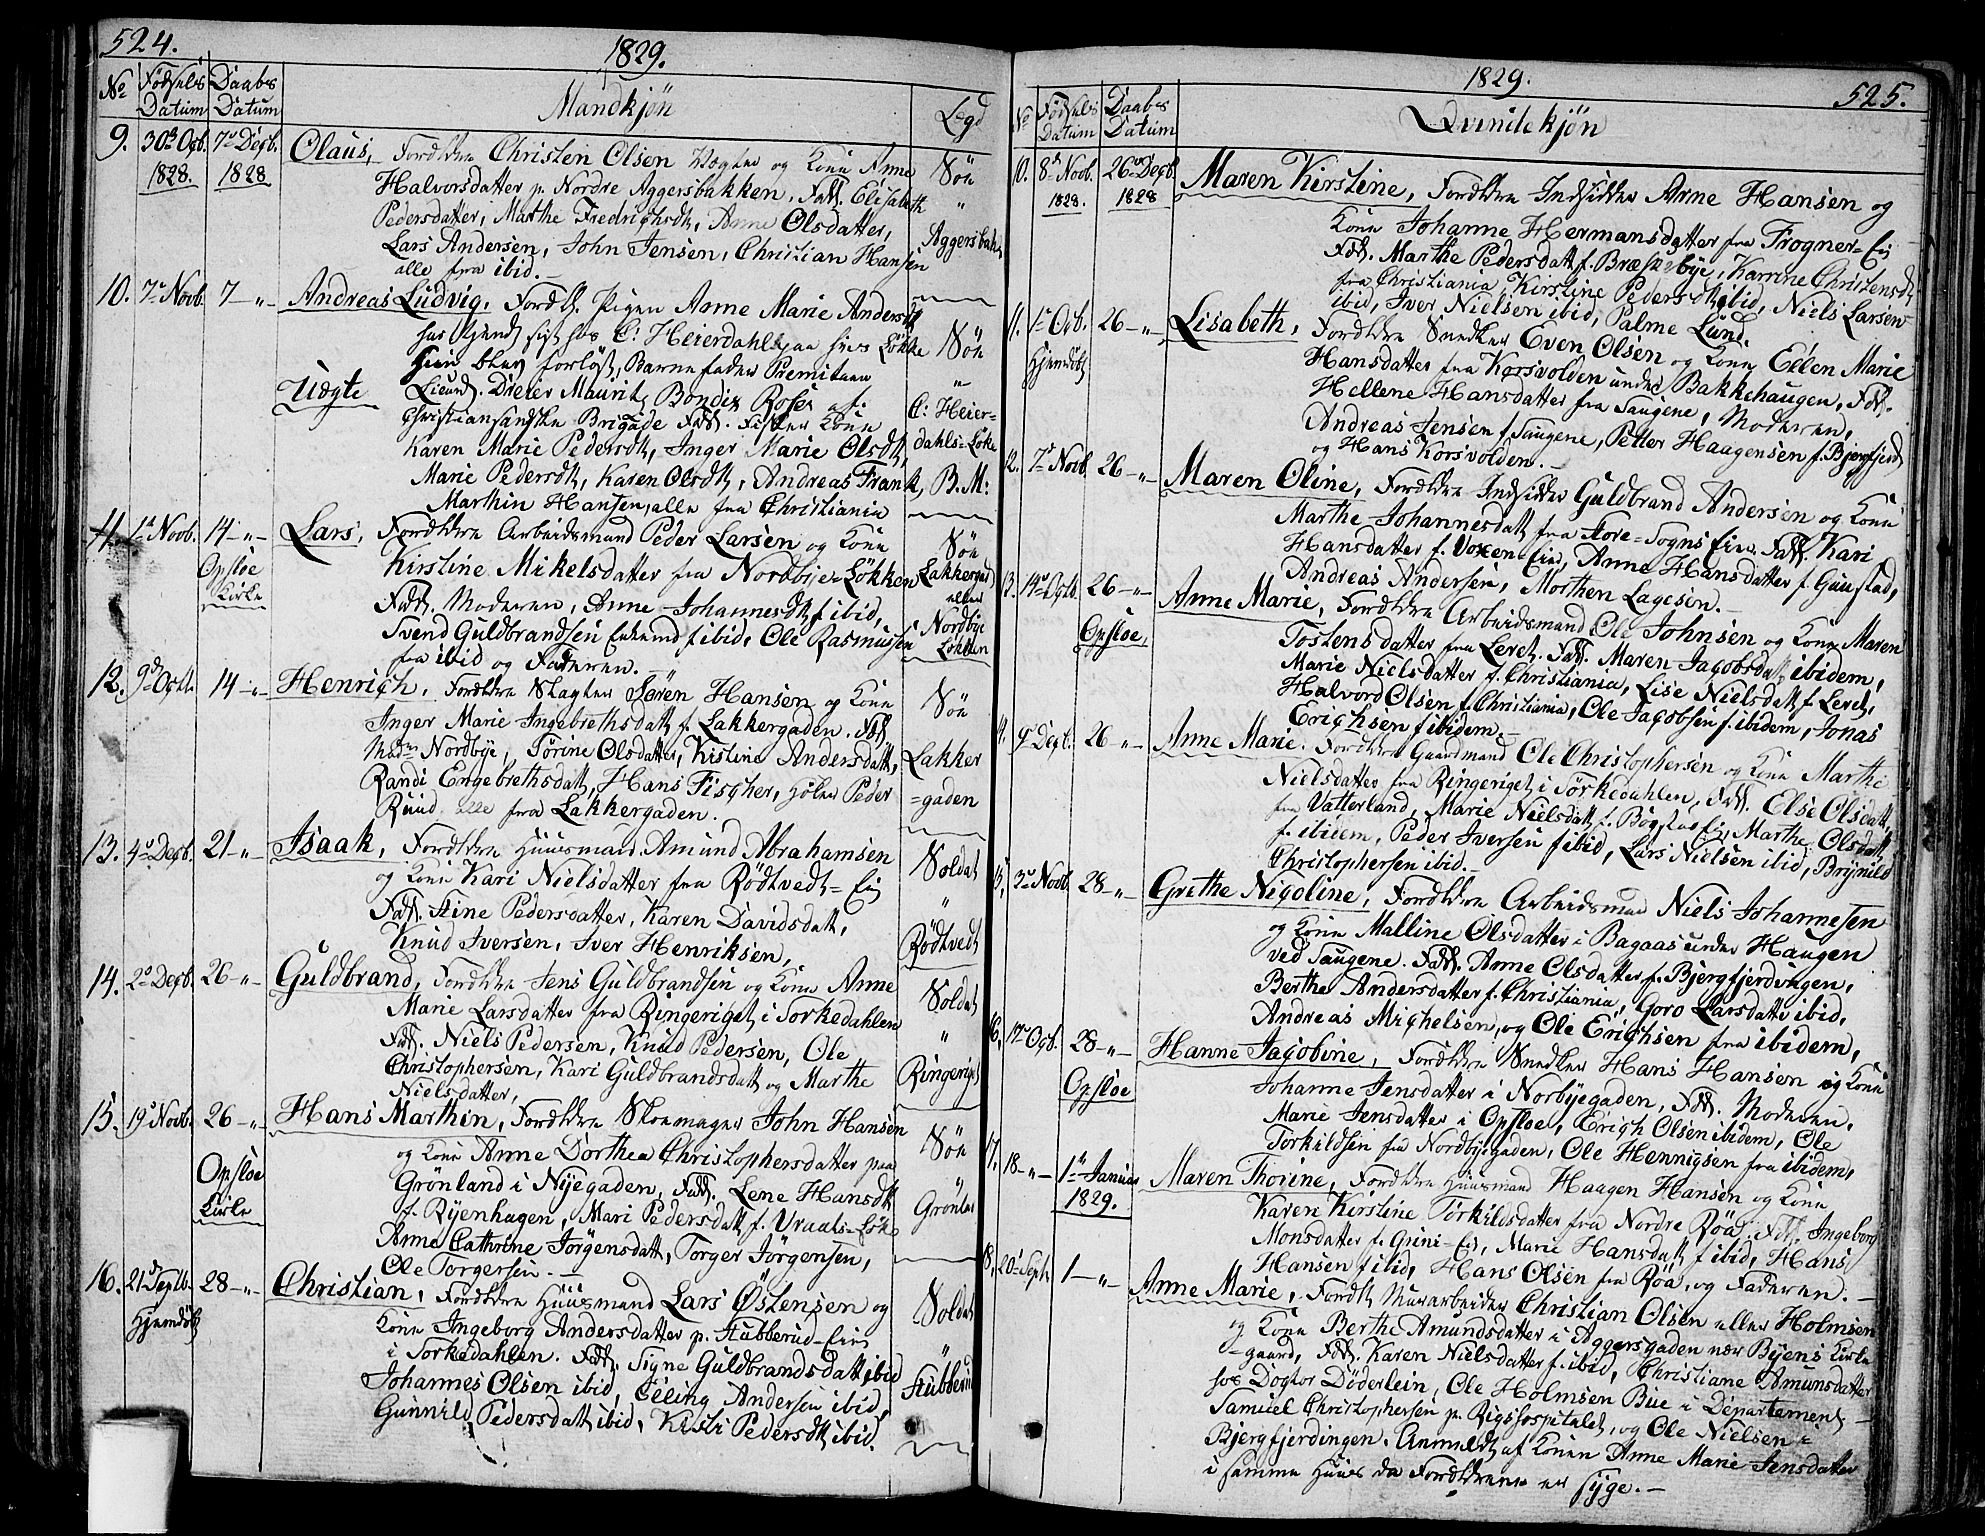 524.
1829.
No Fødsels Datum Daabs Datum Mandkjøn Legd
9. 30 Ogb. 1828. 7 Degb. 1828 Claus, Forældre Christen Olsen Vægter og Kone Anne Søe
Halvorsdatter p. Nordre Aggersbakken, Fadd. Elisabeth "
Pedersdatter, Marthe Fredrichsdt, Anne Olsdatter, Aggersbak
Lars Andersen, John Jensen, Christian Hansen
alle fra ibid.
10. 7 Novb. 7 -"- Andreas Ludvig, Foræld. Pigen Anne Marie Andersdt
hos C: Heierdahl paa hans Løkke Søe
hun blev forløst, Barnefader Premiteer "
Uægte Lieunt. Dreier Maurit, Bondix Rosen af C: Heier-
Christiansandske Brigade Fadd. Fisker Kone dahls-Løke
Karen Marie Pedersdt, Inger Marie Olsdt,
Marie Pedersdt, Karen Olsdt, Andreas Frank, B.M:
Marthin Hansen, alle fra Christiania
11. 1 Novb. 14 -"- Opsloe Kirke Lars, Forældre Arbeidsmand Peder Larsen og Kone Søe
Kirstine Mikelsdatter fra Nordbye-Løkken Lakkergad
Fadd. Moderen, Anne Johannesdt f ibid, eller
Svend Guldbrandsen Enkemd f ibid, Ole Rasmussen Nordbye
fra ibid og Faderen. Løkken
12. 9 Ogtb. 14 -"- Henrigh, Forældre Slagter Søren Hansen og Kone Søe
Inger Marie Ingebrethsdatt f. Lakkergaden. Fadd.
Madm Nordbye, Torine Olsdatter, Kistine Andersdatt, Lakker
Randi Engebrethsdatt, Hans Fischer, Peder -gaden
Ruud alle fra Lakkergaden.
13. 4 Degb. 21 -"- Isaak, Forældre Huusmand Amund Abrahamsen Soldat
og Kone Kari Nielsdatter fra Rødtvedt-Eie "
Fadd. Stine Pedersdatter, Karen Davidsdatt,
Knud Iversen, Iver Henriksen, Rødtvedt
14. 2 Degb. 26 -"- Guldbrand, Forældre Jens Guldbrandsen og Kone Anne Soldat
Marie Larsdatter fra Ringeriget i Sørkedahlen "
Fadd. Niels Pedersen, Knud Pedersen, Ole
Christophersen, Kari Guldbrandsdatt og Marthe Ringeriget
Nielsdatter,
15. 19 Novb. 26 -"- Opsloe Kirke Hans Marthin, Forældre Skomager John Hansen Søe
og Kone Anne Dorthea Christophersdatter paa "
Grønland i Nyegaden, Fadd. Lene Hansdt Grønland
f. Ryenhagen, Mari Pedersdatt f. Vraals-Løke
Anne Cathrine Jørgensdatt, Torger Jørgensen,
Ole Torgersen.
16. 21 Septb. Hjemdøbt 28 -"- Christian, Forældre Huusmand Lars Østensen og Soldat
Kone Ingeborg Andersdatter p. Stubberud-Eie "
i Sørkedahlen. Fadd. Signe Guldbrandsdatt ibid Stubberud
Johannes Olsen ibid, Elling Andersen ibid,
Gunnild Pedersdatt ibid, Kisti Pedersdt ibid.
1829.
525.
No Fødsels Datum Daabs Datum Qvindekjøn
10. 8 Novb. 1828. 26 Degb. 1828 Maren Kirstine, Forældre Indsidder Arne Hansen og
Kone Johanne Hermansdatter fra Frogner-Eie
Fadd. Marthe Pedersdatt f. Bræskebye, Karrine Christensdt
fra Christiania, Kirstine Pedersdt ibid, Niels Larsen
ibid, Iver Nielsen ibid, Palme Lund.
11. 1 Ogb. Hjemdøbt 26 -"- Lisabeth, Forældre Snedker Even Olsen og Kone Ellen Marie
Hansdatter fra Korsvolden under Bakkehaugen, Fadd.
Hellene Hansdatter fra Saugene, Moderen,
Andreas Jensen f Saugene, Petter Haagensen f. Bjergfjerd
og Hans Korsvolden.
12. 7 Novb. 26 -"- Maren Oline, Forældre Indsidder Guldbrand Andersen og Kone
Marthe Johannesdatt fra Store-Sogns Eie. Fadd. Kari
Hansdatter f. Voxen-Eie, Anne Hansdatter f. Gaustad,
Andreas Andersen, Morthen Lagesen.
13. 14 Ogtb. 26 -"- Opsloe, Anne Marie, Forældre Arbeidsmand Ole Johnsen og Kone Maren
Tostensdatter fra Leret. Fadd. Maren Jacobsdatt ibidem,
Marie Nielsdatter f. Christiania, Lise Nielsdatt f. Leret,
Halvord Olsen f. Christiania, Ole Jacobsen f. ibidem, Jonas
Erighsen f ibidem.
14. 9 Degb. 26 -"- Anne Marie, Forældre Gaardmand Ole Christophersen og Kone Marthe
Nielsdatter fra Ringeriget i Sørkedahlen, Fadd. Else Olsdatt,
fra Vatterland, Marie Nielsdatt f. Bogstad Eie, Marthe Olsdatt
f. ibidem, Peder Iversen f ibid, Lars Nielsen ibid, Brynild
Christophersen ibid.
15. 3 Novb. 28 -"- Grethe Nicoline, Forældre Arbeidsmand Niels Johannesen
og Kone Malline Olsdatter i Bagaas under Haugen
ved Saugene. Fadd. Anne Olsdatter f. Bjergfjerdingen,
Berthe Andersdatter f. Christiania, Goro Larsdatt ibid,
Andreas Mighelsen, og Ole Erighsen fra ibidem,
16. 17 Ogb. 28 -"- Opsloe Hanne Jacobine, Forældre Snedker Hans Hansen og Kone
Johanne Jensdatter i Norbyegaden, Fadd. Moderen,
Marie Jensdatter i Opsloe, Erigh Olsen ibidem, Ole
Torkildsen fra Nordbyegaden, Ole Hennigsen fra ibidem,
17. 18 -"- 1 Januar 1829. Maren Thorine, Forældre Huusmand Haagen Hansen og Kone
Karen Kirstine Torkildsdatter fra Nordre Røa, Fadd. Ingeborg
Monsdatter f. Grini-Eie, Marie Hansdatt f ibid, Hans
Hansen f ibid, Hans Olsen fra Røa, og Faderen.
18. 20 Septb. 1 -"- Anne Marie, Foræld. Murarbeider Christian Olsen eller Holmsen
og Kone Berthe Amundsdatter i Aggersgaden nær Byens Kirke
-gaard, Fadd. Karen Nielsdatter f. ibid, Christiane Amunsdatter
hos Dogtor Døderlein, Ole Holmsen Bue i Departement,
Samuel Christophersen p. Rigshospitalet, og Ole Nielsen i
Bjergfjerdingen. Anmeldt af Konen Anne Marie Jensdatter
i samme Huus da Forældrene er syge.